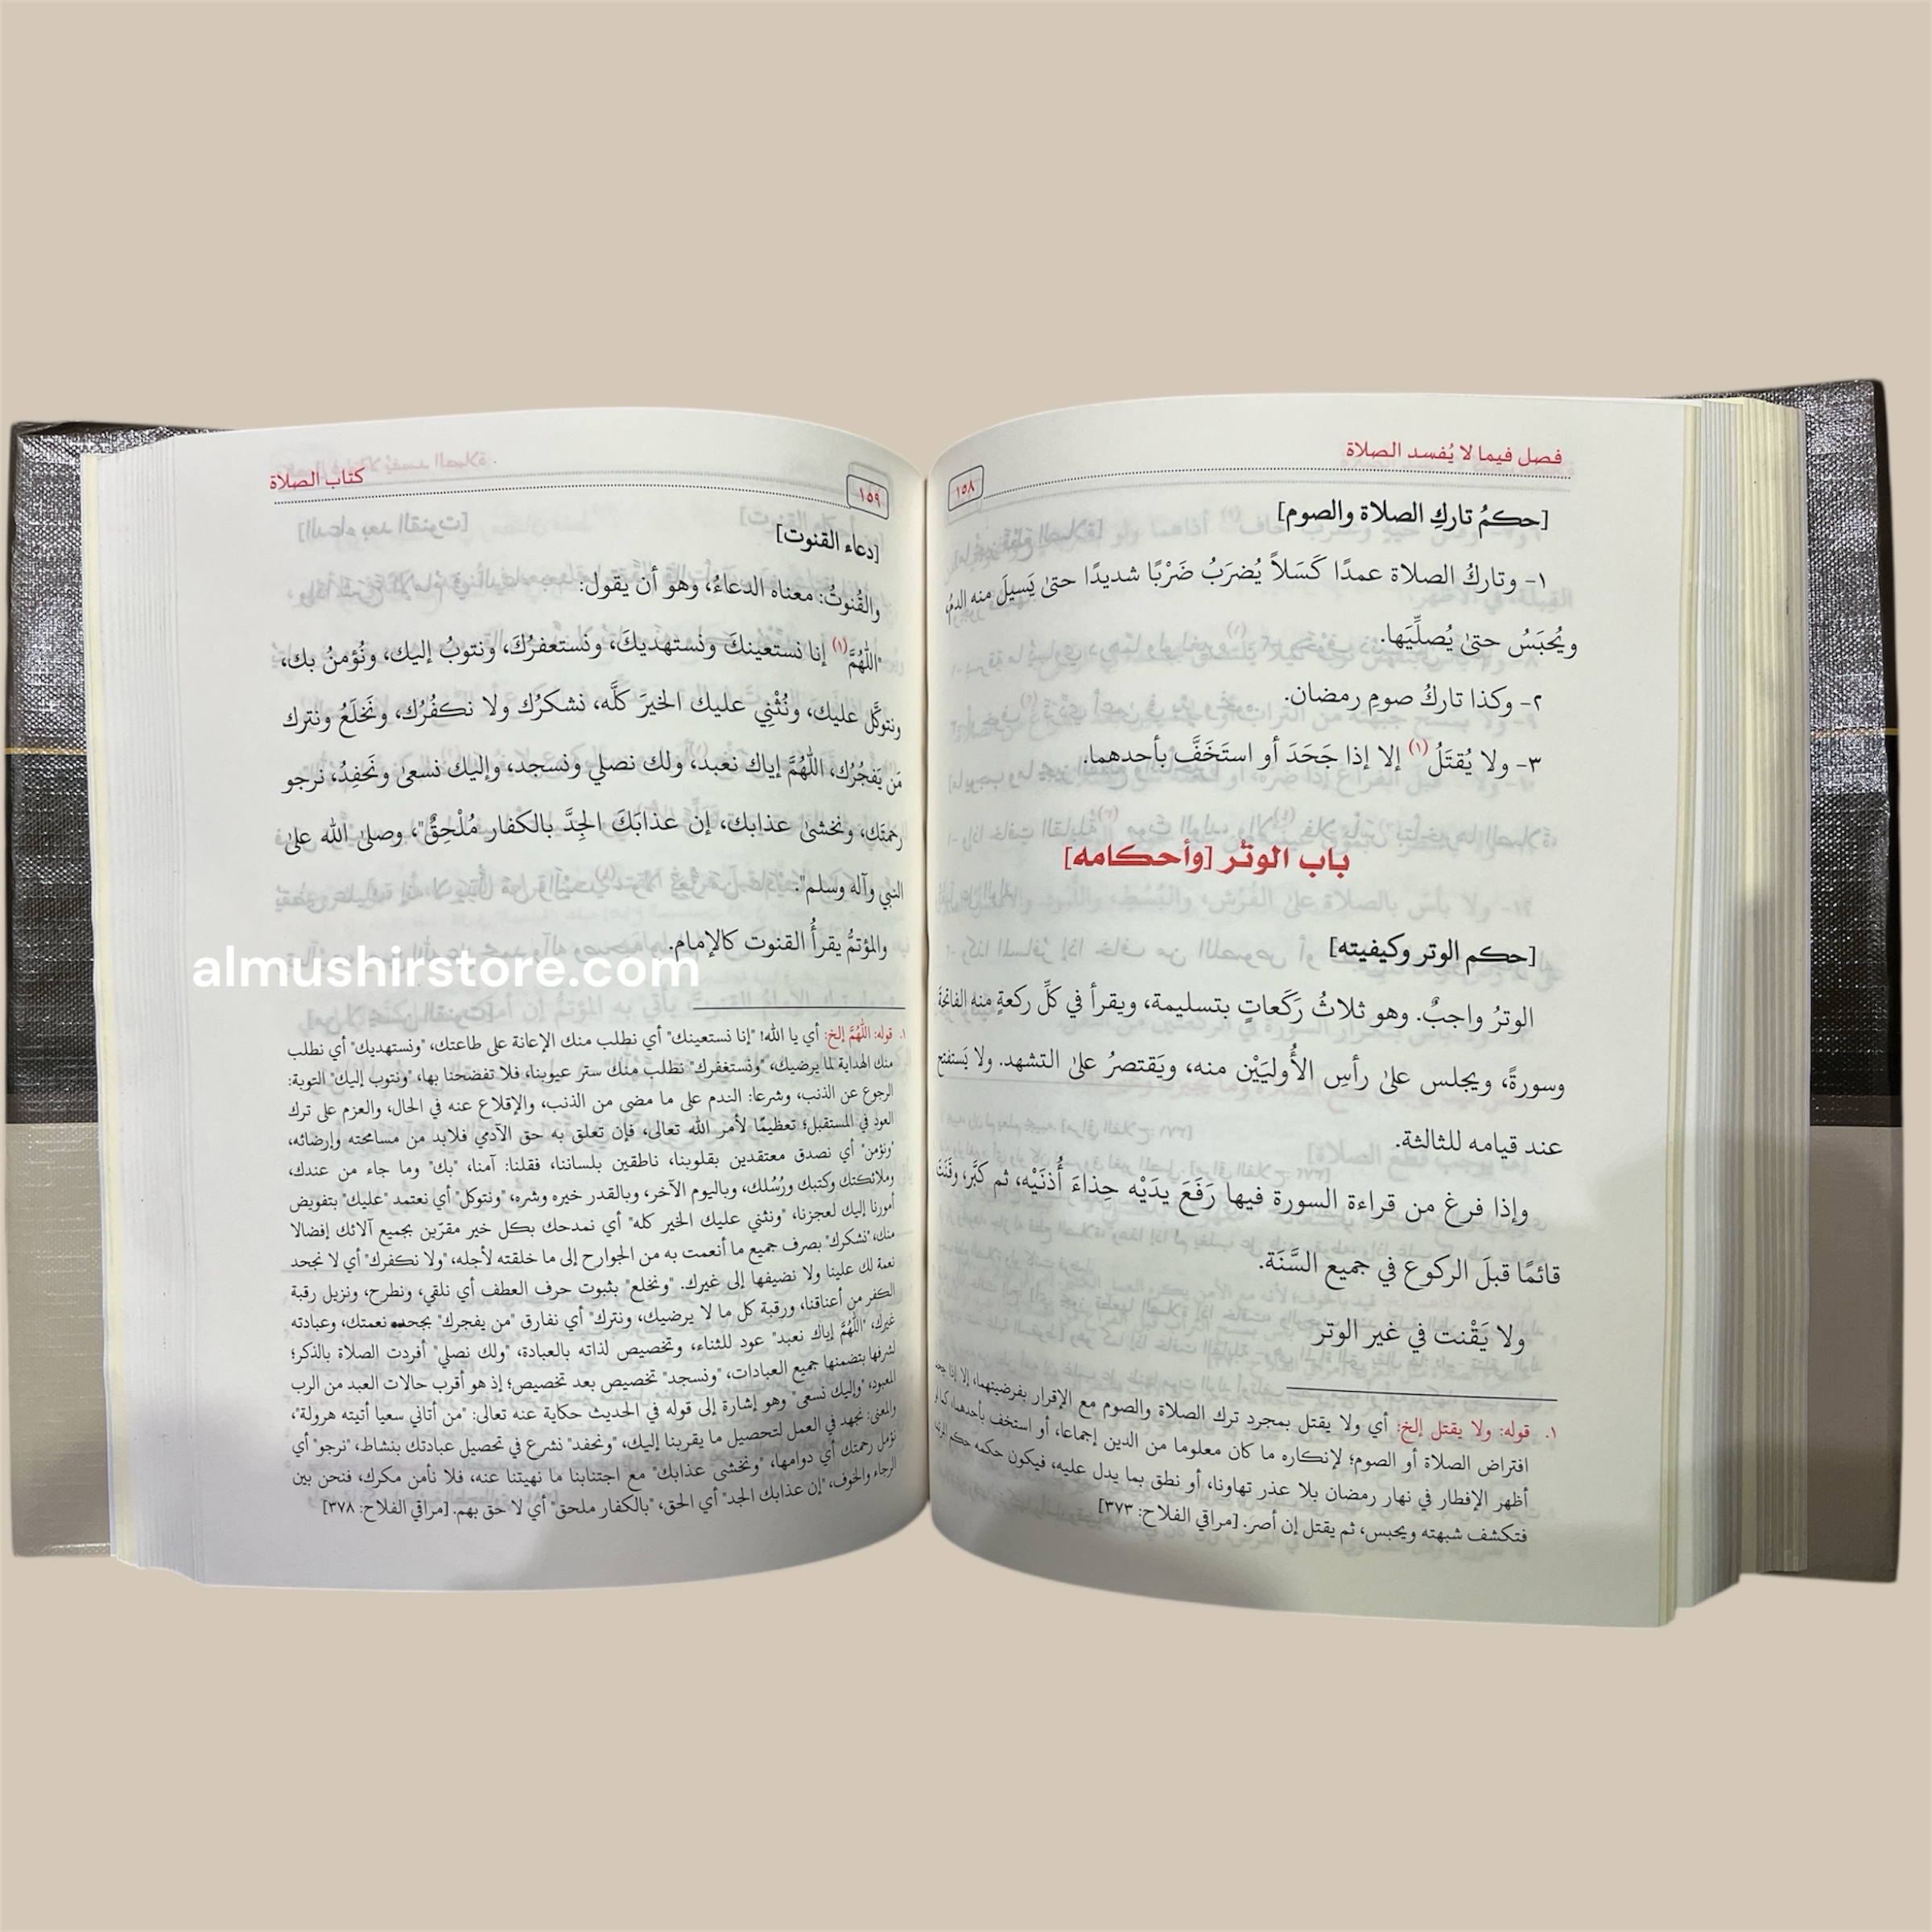 فصل فيما لا يُفسد الصلاة
١٥٨
[حكمُ تاركِ الصلاة والصوم]
١- وتاركُ الصلاة عمدًا كَسَلاً يُضرَبُ ضَرْبًا شديدًا حتىٰ يَسيلَ منه الدمُ،
ويُحبَسُ حتىٰ يُصلِّيَها.
٢- وكذا تاركُ صومِ رمضان.
٣- ولا يُقتَلُ(١) إلا إذا جَحَدَ أو استَخَفَّ بأحدهما.
باب الوتْر [وأحكامه]
[حكم الوتر وكيفيته]
الوترُ واجبٌ. وهو ثلاثُ رَكَعاتٍ بتسليمة، ويقرأ في كلِّ ركعةٍ منه الفاتحةَ
وسورةً، ويجلس علىٰ رأسِ الأُوليَيْن منه، ويَقتصرُ علىٰ التشهد. ولا يَستفتح
عند قيامه للثالثة.
وإذا فرغ من قراءة السورة فيها رَفَعَ يدَيْه حِذاءَ أُذنَيْه، ثم كَبَّر، وقَنَتَ
قائمًا قبلَ الركوع في جميع السَّنَة.
ولا يَقْنت في غير الوتر
١. قوله: ولا يقتل إلخ: أي ولا يقتل بمجرد ترك الصلاة والصوم مع الإقرار بفرضيتهما، إلا إذا جحد
افتراض الصلاة أو الصوم؛ لإنكاره ما كان معلوما من الدين إجماعا، أو استخف بأحدهما، كما لو
أظهر الإفطار في نهار رمضان بلا عذر تهاونا، أو نطق بما يدل عليه، فيكون حكمه حكم المرتد
فتكشف شبهته ويحبس، ثم يقتل إن أصر. [مراقي الفلاح: ٣٧٣]
كتاب الصلاة
١٥٩
[دعاء القنوت]
والقُنوتُ: معناه الدعاءُ، وهو أن يقول:
"اللّٰهُمَّ(١) إنا نستعينكَ ونستهديكَ، ونستغفرُكَ، ونتوبُ إليك، ونُؤمنُ بك،
ونتوكَّل عليك، ونُثْنِي عليك الخيرَ كلَّه، نشكرُك ولا نكفُرُك، ونَخلَعُ ونترك
مَن يَفجُرُك، اللّٰهُمَّ إياك نعبد، ولك نصلي ونسجد، وإليك نسعىٰ ونَحفِدُ، نرجو
رحمتَك، ونخشىٰ عذابك، إن عذابَكَ الجِدَّ بالكفار مُلْحِقٌ"، وصلىٰ الله علىٰ
النبي وآله وسلم".
والمؤتمُّ يقرأُ القنوت كالإمام.
١. قوله: اللّٰهُمَّ إلخ: أي يا الله! "إنا نستعينك" أي نطلب منك الإعانة على طاعتك، "ونستهديك" أي نطلب
منك الهداية لما يرضيك، "ونستغفرك" نطلب منك ستر عيوبنا، فلا تفضحنا بها، "ونتوب إليك" التوبة:
الرجوع عن الذنب، وشرعا: الندم على ما مضى من الذنب، والإقلاع عنه في الحال، والعزم على ترك
العود في المستقبل؛ تعظيمًا لأمر الله تعالى، فإن تعلق به حق الآدمي فلابد من مسامحته وإرضائه،
"ونؤمن" أي نصدق معتقدين بقلوبنا، ناطقين بلساننا، فقلنا: آمنا، "بك" وما جاء من عندك،
وملائكتك وكتبك ورُسُلك، وباليوم الآخر، وبالقدر خيره وشره، "ونتوكل" أي نعتمد "عليك" بتفويض
أمورنا إليك لعجزنا، "ونثني عليك الخير كله" أي نمدحك بكل خير مقرّين بجميع آلائك إفضالا
منك، "نشكرك" بصرف جميع ما أنعمت به من الجوارح إلى ما خلقته لأجله، "ولا نكفرك" أي لا نجحد
نعمة لك علينا ولا نضيفها إلى غيرك. "ونخلع" بثبوت حرف العطف أي نلقي، ونطرح، ونزيل رقبة
الكفر من أعناقنا، ورقبة كل ما لا يرضيك، ونترك" أي نفارق "من يفجرك" بجحده نعمتك، وعبادته
غيرك، "اللّٰهُمَّ إياك نعبد" عود للثناء، وتخصيص لذاته بالعبادة، "ولك نصلي" أفردت الصلاة بالذكر؛
لشرفها بتضمنها جميع العبادات، "ونسجد" تخصيص بعد تخصيص؛ إذ هو أقرب حالات العبد من الرب
المعبود، "وإليك نسعى" وهو إشارة إلى قوله في الحديث حكاية عنه تعالى: "من أتاني سعيا أتيته هرولة"،
والمعنى: نجهد في العمل لتحصيل ما يقربنا إليك، "ونحفد" نشرع في تحصيل عبادتك بنشاط، "نرجو" أي
نؤمل رحمتك أي دوامها، "ونخشى عذابك" مع اجتنابنا ما نهيتنا عنه، فلا نأمن مكرك، فنحن بين
الرجاء والخوف، "إن عذابك الجد" أي الحق، "بالكفار ملحق" أي لا حق بهم. [مراقي الفلاح: ٣٧٨]
almushirstore.com